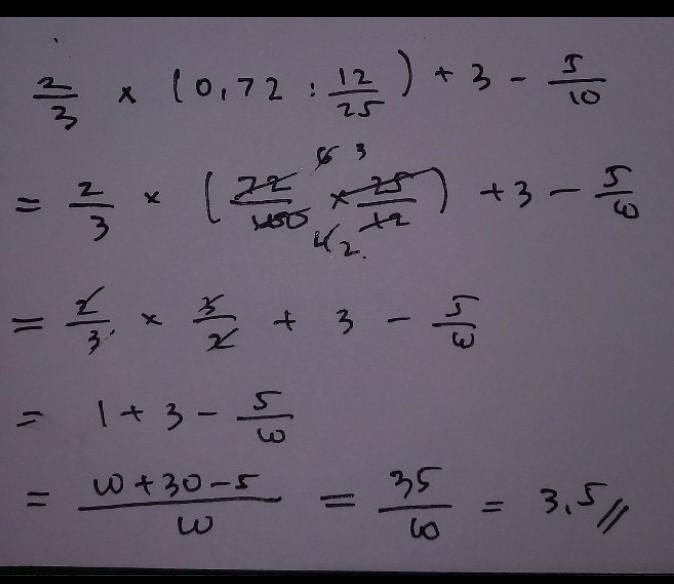 2/3 x (0,72 : 12/25) + 3 - 5/10
= 2/3 x (72/100 x 25/12) + 3 - 5/10
= 2/3 x 3/2 + 3 - 5/10
= 1 + 3 - 5/10
= 10+30-5/10 = 35/10 = 3,5//